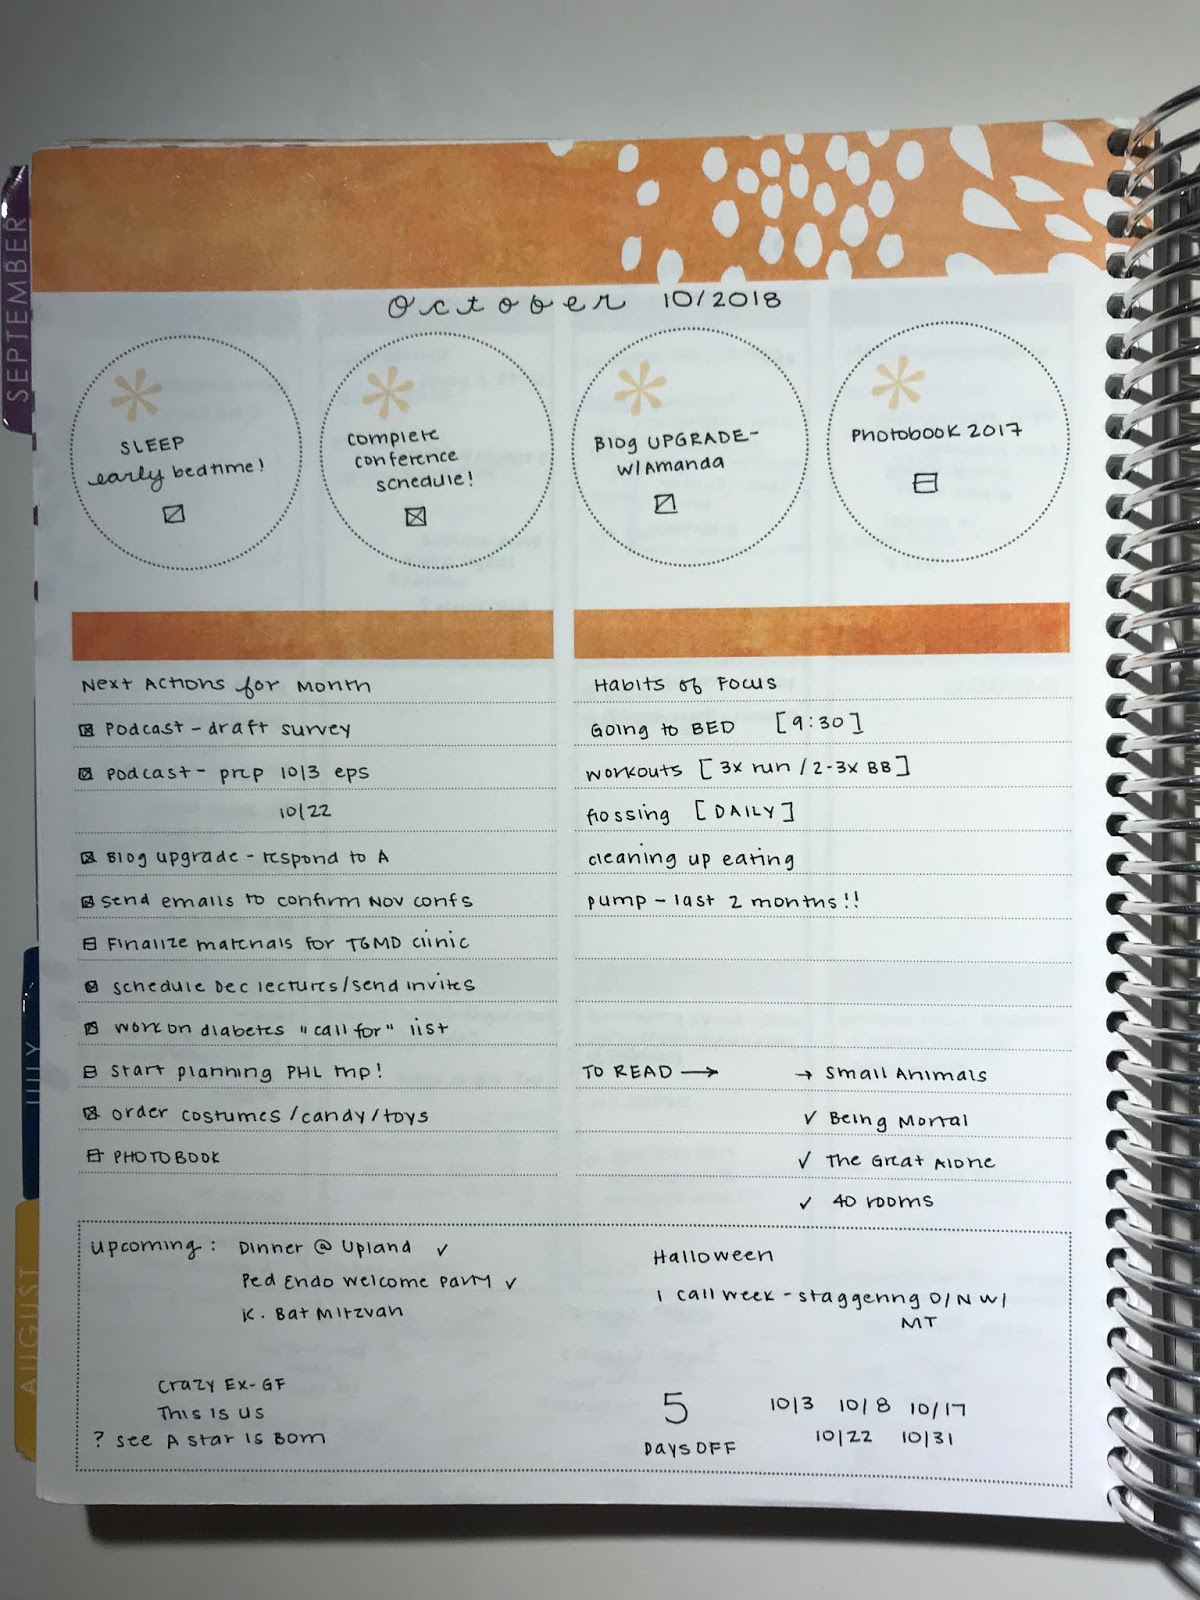 SEPTEMBER
October 10/2018
SLEEP
early bedtime!
complete
conference
schedule!
Blog UPGRADE-
W/Amanda
Photobook 2017
Next Actions for Month
Podcast - draft survey
Podcast - prep 10/3 eps
10/22
Blog upgrade - respond to A
Send emails to confirm Nov confs
Finalize materials for TGMD clinic
schedule Dec lectures/send invites
work on diabetes "call for" list
Start planning PHL trip!
order costumes/candy/toys
PHOTOBOOK
Habits of Focus
Going to BED [9:30]
workouts [3x run / 2-3x BB]
flossing [DAILY]
cleaning up eating
pump - last 2 months!!
TO READ → → Small Animals
✓ Being Mortal
✓ The Great Alone
✓ 40 rooms
JULY
AUGUST
upcoming: Dinner @ Upland ✓
Ped Endo Welcome Party ✓
K. Bat Mitzvah
Crazy Ex-GF
This Is Us
? see A Star Is Born
Halloween
1 call week - staggering O/N W/
MT
5
Days OFF
10/3 10/8 10/17
10/22 10/31